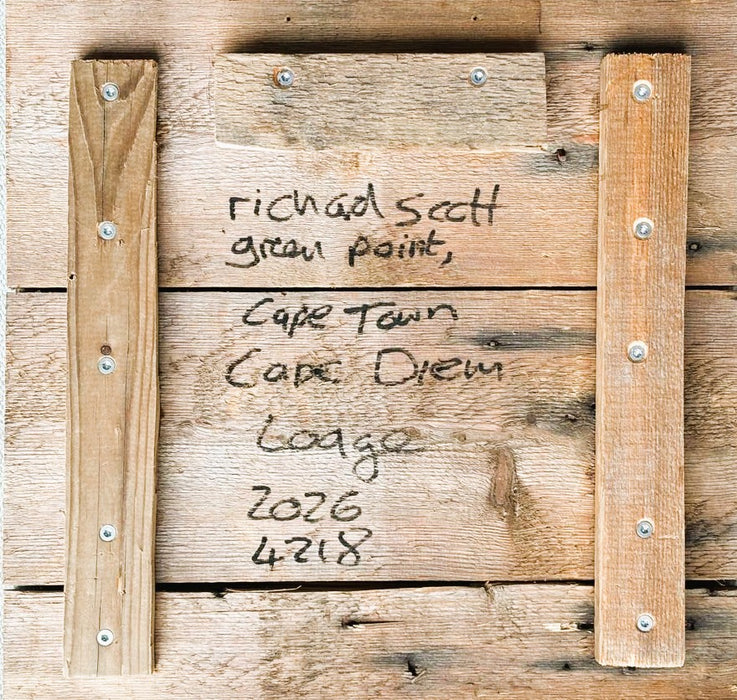 richad scott
green point,
Cape Town
Cape Diem
Lodge
2026
4218